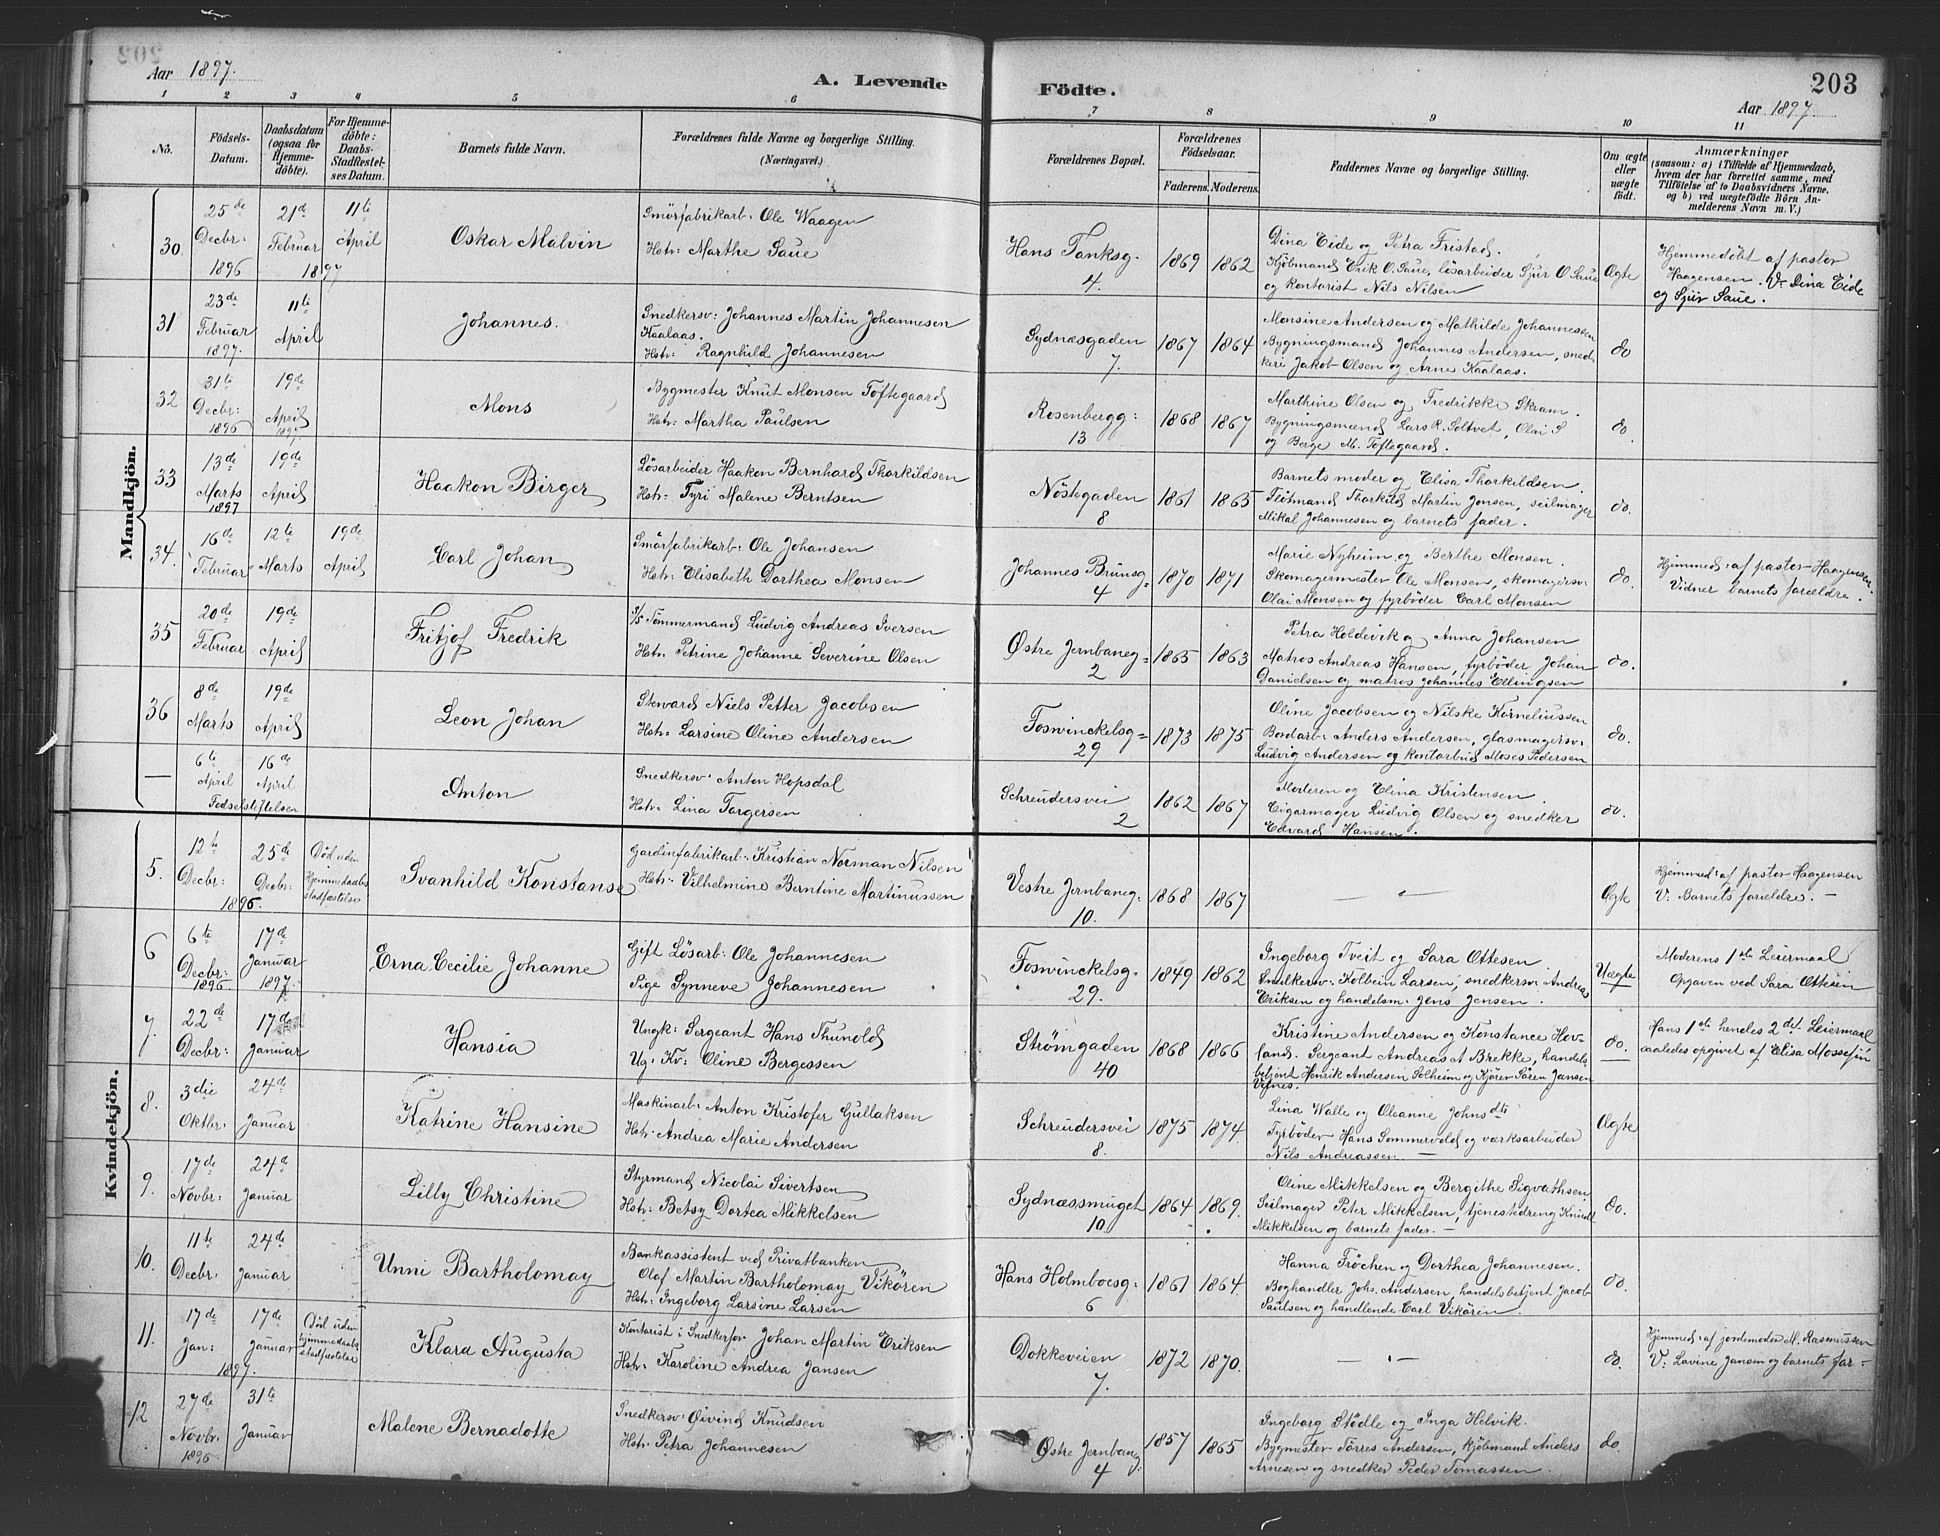 203
Aar 1897.
A. Levende Födte.
Aar 1897.
1 2 3 4 5 6 7 8 9 10 11
No.
Födsels-Datum.
Daabsdatum (ogsaa for Hjemme-döbte).
For Hjemme-döbte: Daabs-Stadfæstel-ses Datum.
Barnets fulde Navn.
Forældrenes fulde Navne og borgerlige Stilling. (Næringsvei.)
Forældrenes Bopæl.
Forældrenes Födselsaar.
Faderens. Moderens.
Faddernes Navne og borgerlige Stilling.
Om ægte eller uægte födt.
Anmærkninger
(saasom: a) i Tilfælde af Hjemmedaab, hvem der har forrettet samme, med Tilföielse af to Daabsvidners Navne. og b) ved uægtefödte Börn An-melderens Navn m. V.)
Mandkjön.
30 25de Decbr: 1896 21de Februar 1897 11te April
Oskar Malvin
Smörfabrikarb: Ole Waagen
Hstr: Marthe Saue
Hans Tanksg. 4. 1869 1862
Dina Eide og Petra Fristad.
Kjöbmand Erik O. Saue, lösarbeider Sjur O Saue
og kontorist Nils Nilsen
Ægte
Hjemmedöbt af pastor
Haagensen. V: Dina Eide
og Sjur Saue.
31 23de Februar 1897. 11te April
Johannes.
Snedkersv: Johannes Martin Johannesen
Kaalaas.
Hstr: Ragnhild Johannesen
Sydnæsgaden 7. 1867 1864
Monsine Andersen og Mathilde Johannessen
Bygningsmand Johannes Andersen, sned-
keri Jakob Olsen og Arne Kaalaas.
do
32 31te Decbr: 1896 19de April 1897
Mons
Bygmester Knut Monsen Toftegaard
Hstr: Martha Paulsen
Rosenbergg: 13 1868 1867
Marthine Olsen og Fredrikke Skram.
Bygningsmænd Lars R. Soltvet, Olai S
og Berge M. Toftegaard.
do.
33 13de Marts 1897 19de April
Haakon Birger
Lösarbeider Haakon Bernhard Thorkildsen
Hstr: Tyri Malene Berntsen
Nöstegaden 8 1861 1865
Barnets moder og Elisa Thorkildsen.
Flötmand Thorkild Martin Jonsen, seilmager
Mikal Johannesen og barnets fader.
do.
34. 16de Februar 12te Marts 19de April
Carl Johan
Smörfabrikarb: Ole Johansen
Hstr: Elisabeth Dorthea Monsen
Johannes Brunsg: 4 1870 1871
Marie Nyheim og Berthe Monsen.
Skomagermester Ole Monsen, skomagersv:
Olai Monsen og fyrböder Carl Monsen
do.
Hjemmed: af pastor Haagensen
Vidner barnets forældre.
35 20de Februar 19de April
Fritjof Fredrik
3/5 Tömmermand Ludvig Andreas Iversen
Hstr: Petrine Johanne Severine Olsen
Østre Jernbaneg: 2 1865 1863
Petra Holdevik og Anna Johansen
Matros Andreas Hansen, fyrböder Johan
Danielsen og matros Johannes Ellingsen
do.
36 8de Marts 19de April
Leon Johan
Steward Niels Petter Jacobsen
Hstr: Larsine Oline Andersen
Foswinckelsg: 29 1873 1875
Oline Jacobsen og Nilske Korneliussen
Bordarb: Anders Andersen, glasmagersv:
Ludvig Andersen og kontorbud Moses Pedersen
do.
— 6te April 16de April
Födselstiftelsen
Anton
Snedkersv: Anton Hopsdal
Hstr: Lina Torgersen
Schreudersvei 2 1862 1867
Moderen og Elina Kristensen.
Cigarmager Ludvig Olsen og snedker
Edvard Hansen.
do.
Kvindekjön.
5. 12te Decbr: 25de Decbr: 1896. Död uden Hjemmedaabs stadfæstelse
Svanhild Konstanse
Gardinfabrikarb: Kristian Norman Nilsen
Hstr: Vilhelmine Berntine Martinussen
Vestre Jernbaneg. 10. 1868 1867
— " —
Ægte
Hjemmed: af pastor Haagensen
V: Barnets forældre. —
6 6te Decbr: 1896 17de Januar 1897.
Erna Cecilie Johanne
Gift Lösarb: Ole Johannesen
Pige Synneve Johannesen
Foswinckelsg. 29. 1849 1862
Ingeborg Tveit og Sara Ottesen
Snedkersv: Kolbein Larsen, snedkersv: Andreas
Eriksen og handelsm: Jens Jensen.
Uægte
Moderens 1ste Leiermaal
Opgaven ved Sara Ottesen
7. 22de Decbr: 17de Januar
Hansia
Ungk: Sergeant Hans Thunold
Ug: Kv: Oline Bergessen
Strömgaden 40 1868 1866
Kristine Andersen og Konstance Hov-
land. Sergeant Andreas A Brekke, handels-
betjent Henrik Andersen Solheim og Kjören Sören Jansen
do.
Hans 1ste hendes 2det Leiermaal
saaledes opgivet af Elisa Mossefin
8. 3die Oktbr: 24de Januar
Katrine Hansine
Maskinarb: Anton Kristofer Gullaksen
Hstr: Andrea Marie Andersen
Schreudersvei 8. 1875 1874.
Lina Walle og Oleanne Johnsdtr
Fyrböder Hans Sommervold og værksarbeider
Nils Andreassen. —
Ægte
9. 17de Novbr: 24de Januar
Lilly Christine
Styrmand Nicolai Sivertsen
Hstr: Betsy Dortea Mikkelsen
Sydnæssmuget 10. 1864 1869.
Oline Mikkelsen og Bergithe Sigvathsen
Seilmager Peter Mikkelsen, tjenestedreng Knud
Mikkelsen og barnets fader. —
do.
10. 11te Decbr: 24de Januar
Unni Bartholomay
Bankassistent ved Privatbanken
Olaf Martin Bartholomay Vikören
Hstr: Ingeborg Larsine Larsen
Hans Holmboesg: 6 1861 1864.
Hanna Fröchen og Dorthea Johannesen.
Boghandler Johs. Andersen, handelsbetjent Jacob
Paulsen og handlende Carl Vikören.
do.
11. 17de Jan: 1897. 17de Januar Död uden hjemmedaabs stadfæstelse
Klara Augusta
Kontorist i Snedkerfor. Johan Martin Eriksen
Hstr: Karoline Andrea Jansen
Dokkeveien 7. 1872 1870.
— " —
do.
Hjemmed: af jordemoder M. Rasmussen
V: Lovine Jansen og barnets far —
12 27de Novbr: 1896 31te Januar
Malene Bernadotte
Snedkersv: Øivind Knudsen
Hstr: Petra Johannesen
Østre Jernbaneg: 4 1857 1865
Ingeborg Stödle og Inga Helvik.
Bygmester Torres Andersen, kjöbmand Anders
Arnesen og snedker Peder Tomassen.
do.